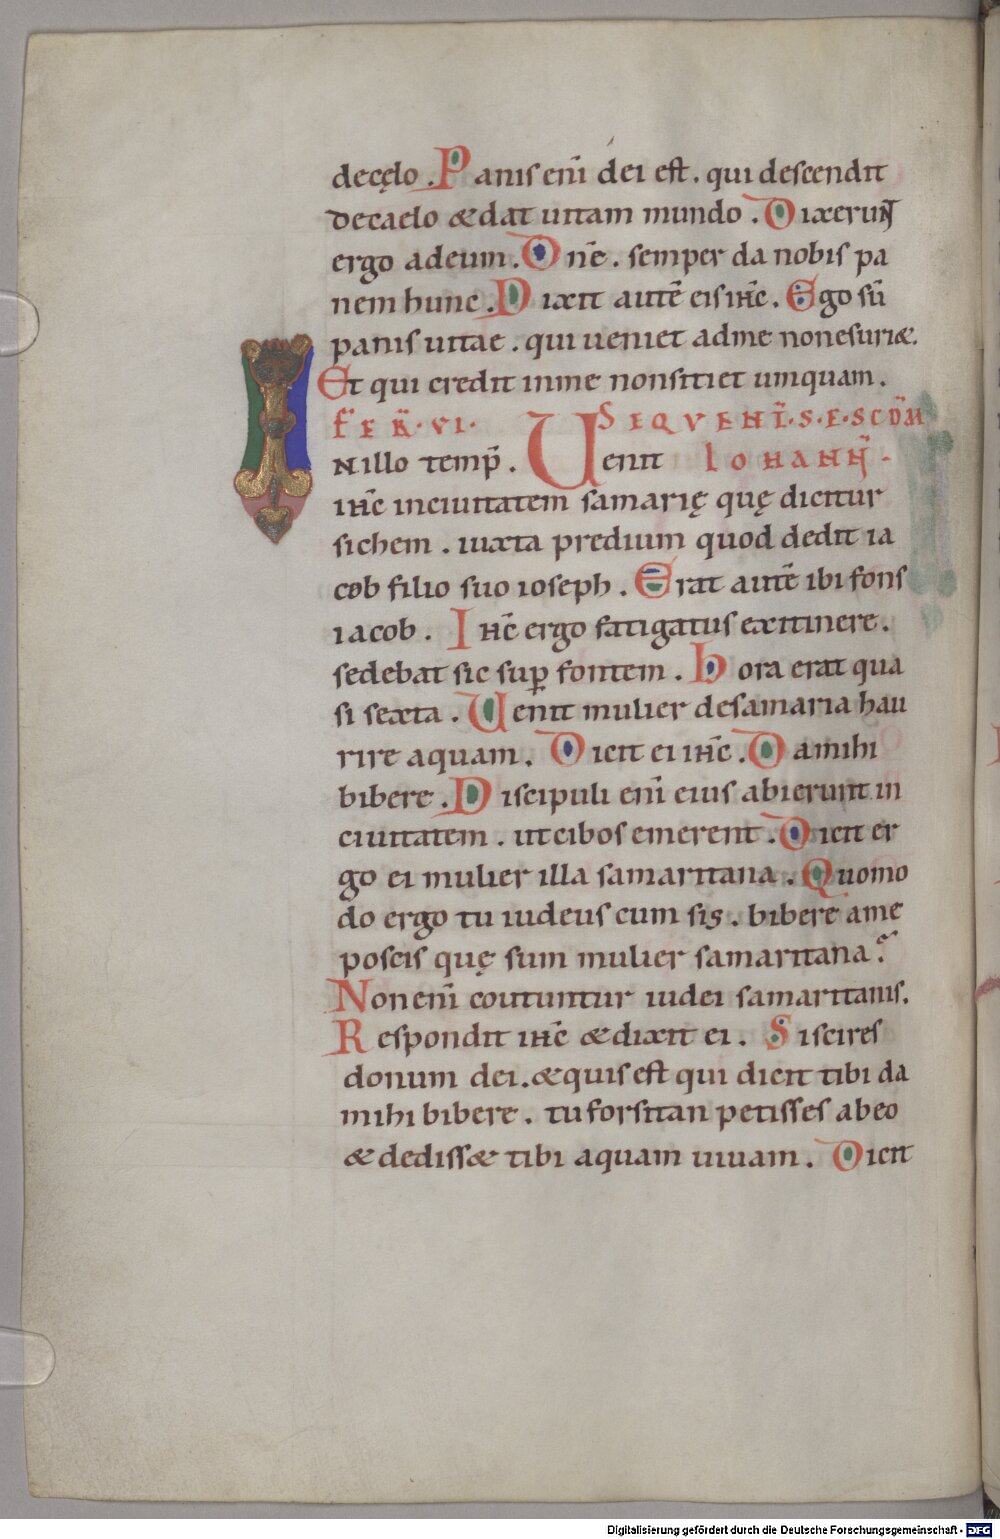 decęlo. Panis enī dei est. qui descendit
decaelo &dat uitam mundo. Dixerunt
ergo adeum. Dn̄e. semper da nobis pa
nem hunc. Dixit autē eis ih̄c. Ego sū
panis uitae. qui ueniet adme nonesuri&.
Et qui credit inme nonsitiet umquam.
FER̄·VI· SEQVENT̄·S·E·SCD̄M
INillo temp̄. Uenit IOHANN̄·
ih̄c inciuitatem samarię quę dicitur
sichem. iuxta predium quod dedit ia
cob filio suo ioseph. Erat autē ibi fons
iacob. Ih̄c ergo fatigatus exitinere.
sedebat sic sup̱ fontem. Hora erat qua
si sexta. Uenit mulier desamaria hau
rire aquam. Dicit ei ih̄c. Da mihi
bibere. Discipuli enī eius abierunt in
ciuitatem. ut cibos emerent. Dicit er
go ei mulier illa samaritana. Quomo
do ergo tu iudeus cum sis. bibere ame
poscis quę sum mulier samaritana?
Non enī coutuntur iudei samaritanis.
Respondit ih̄c &dixit ei. Si scires
donum dei. &quis est qui dicit tibi da
mihi bibere. tu forsitan petisses abeo
&dediss& tibi aquam uiuam. Dicit
Digitalisierung gefördert durch die Deutsche Forschungsgemeinschaft - DFG